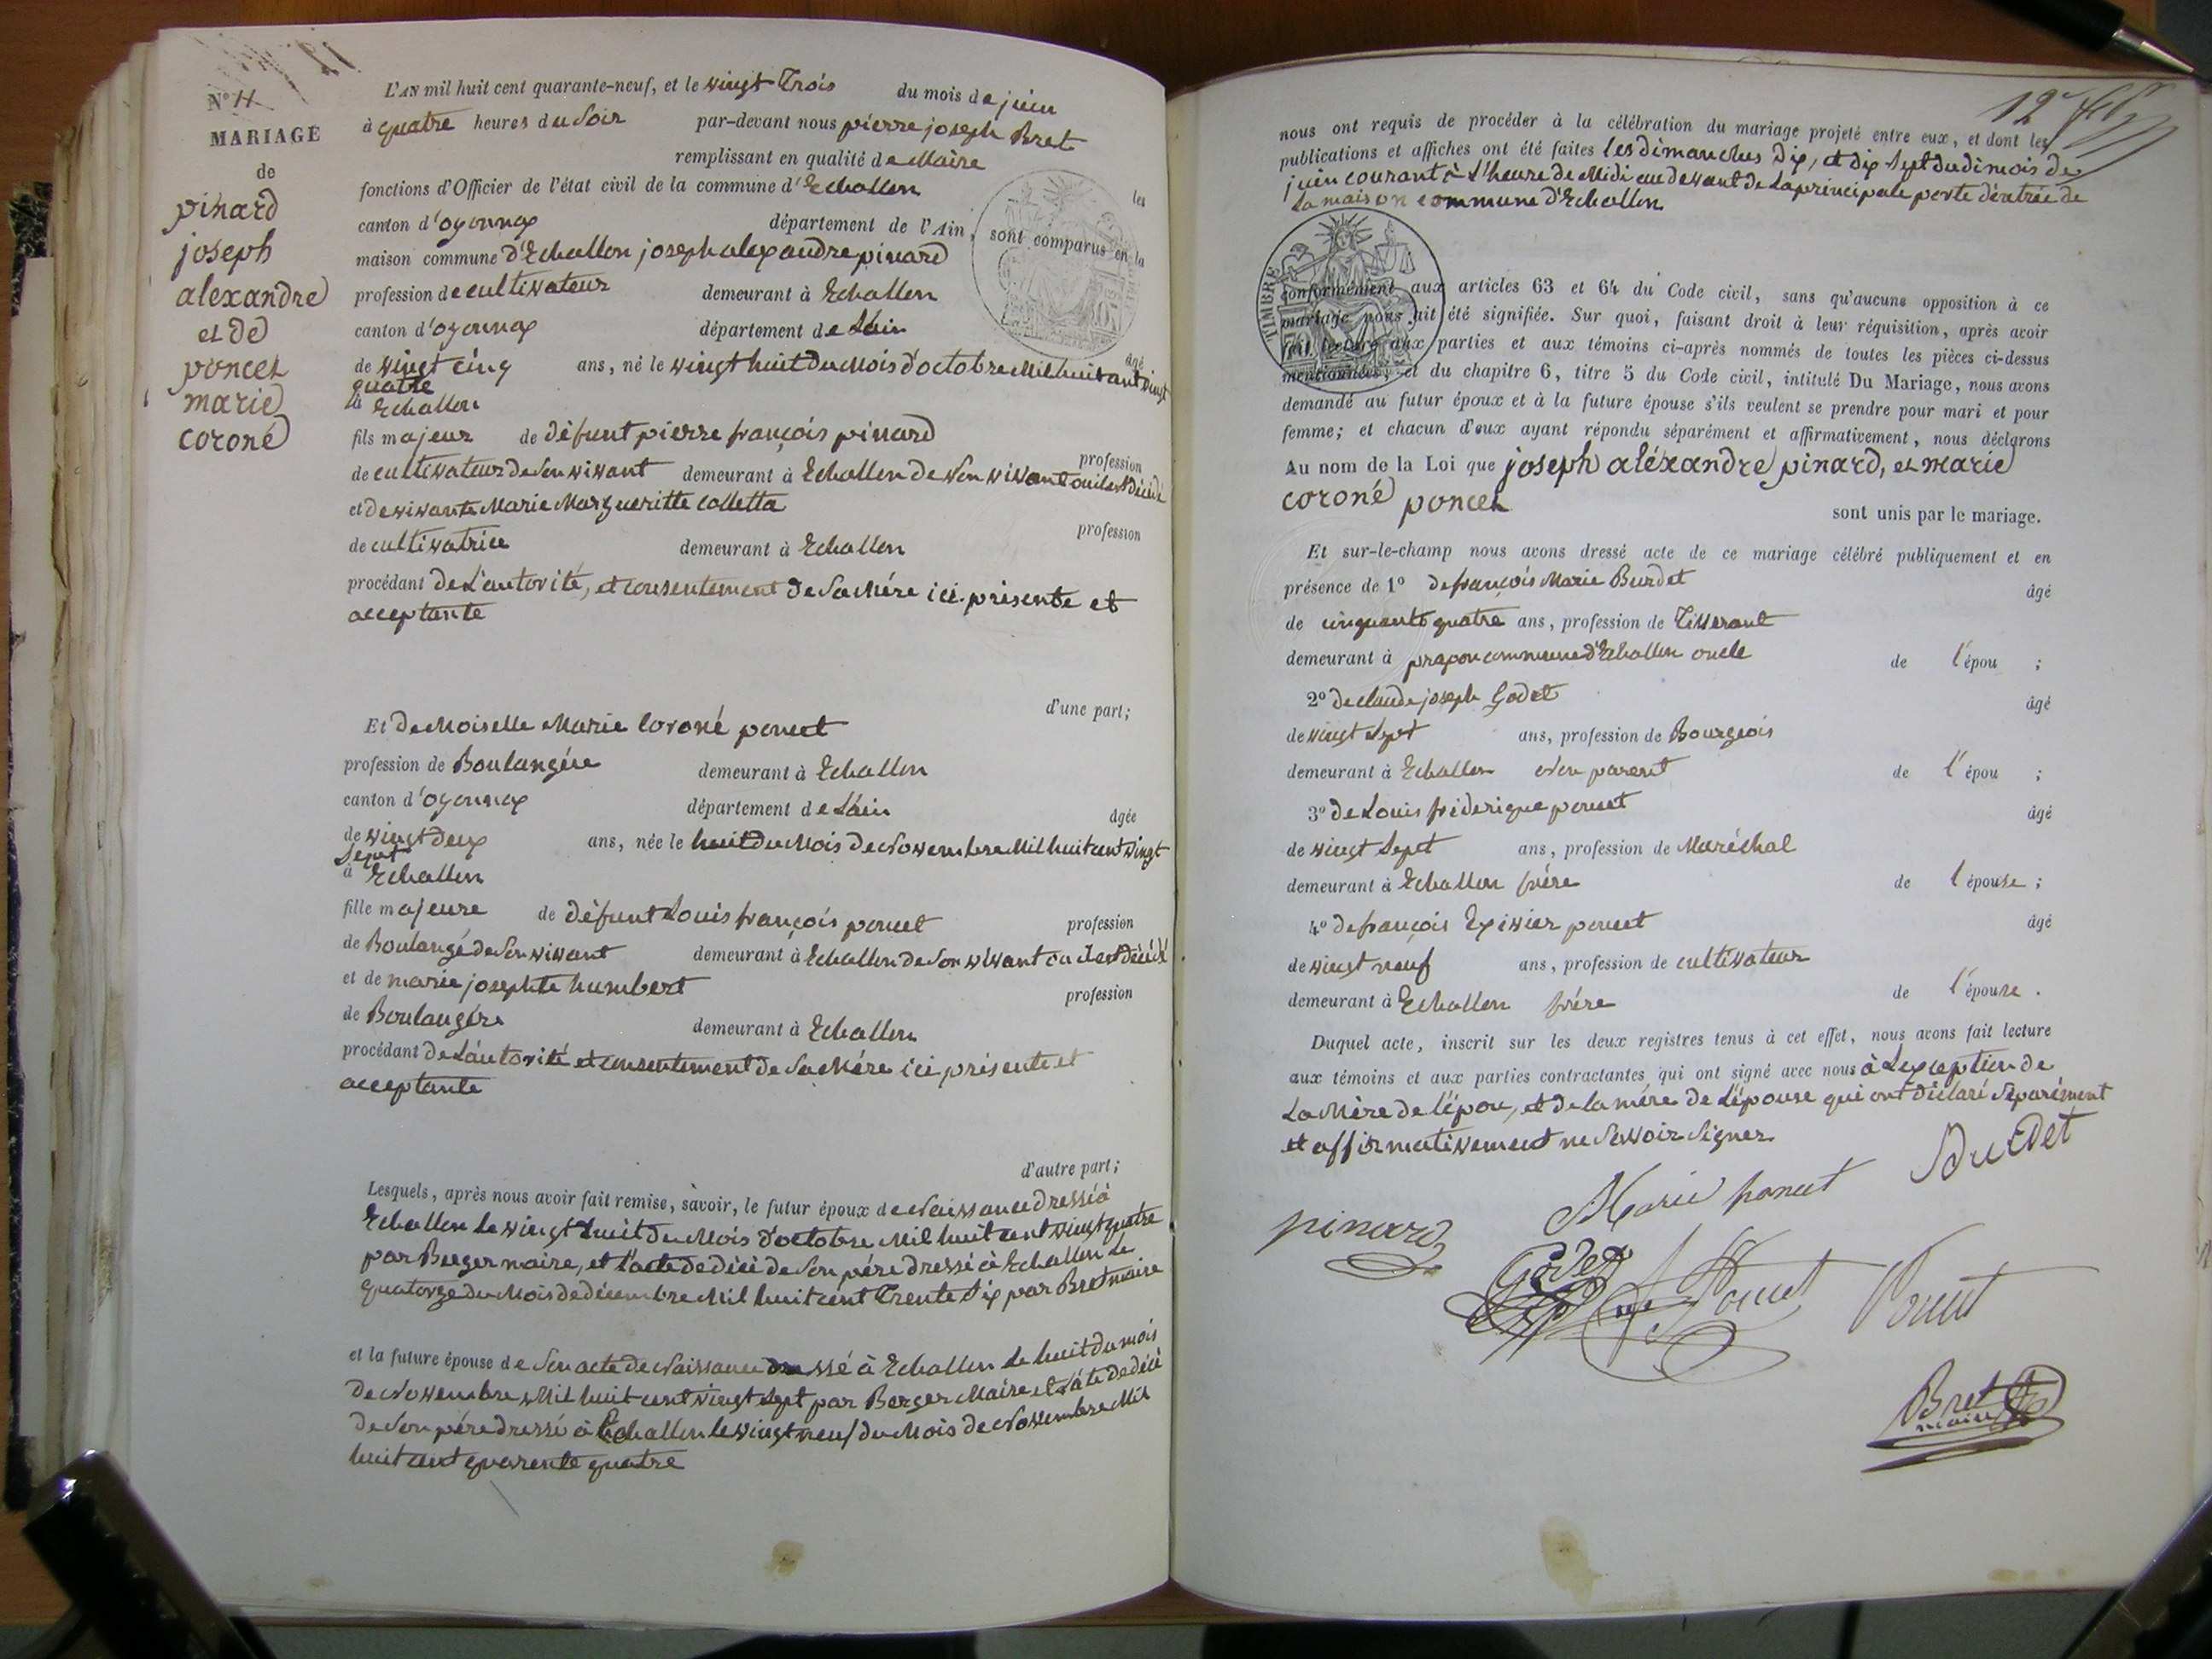 N° 11
MARIAGE
de
pinard
joseph
alexandre
et de
poncet
marie
coroné
L'AN mil huit cent quarante-neuf, et le vingt Trois du mois de juin
à quatre heures du Soir par-devant nous pierre joseph Bret
remplissant en qualité de Maire les
fonctions d'Officier de l'état civil de la commune d'Echallon
canton d'oyonnax département de l'Ain, sont comparus en la
maison commune d'Echallon joseph alexandre pinard
profession de cultivateur demeurant à Echallon
canton d'oyonnax département de Láin âgé
de vingt cinq ans, né le vingt huit du Mois d'octobre Mil huit cent vingt
quatre
à Echallon
fils majeur de défunt pierre françois pinard profession
de cultivateur de Son vivant demeurant à Echallon de Son vivant ou il est décédé
et de vivante Marie Margueritte Colletta profession
de cultivatrice demeurant à Echallon
procédant de L'autorité, et consentement de Sa Mére ici présente et
acceptante
d'une part;
Et deMoiselle Marie Coroné poncet
profession de Boulangére demeurant à Echallon
canton d'oyonnax département de Láin âgée
de vingt deux ans, née le huit du Mois de Novembre Mil huit cent vingt
Sept
à Echallon
fille majeure de défunt Louis françois poncet profession
de Boulangé de Son vivant demeurant à Echallon de Son vivant ou il est décédé
et de marie josephte humbert profession
de Boulangére demeurant à Echallon
procédant de Láutorité et consentement de Sa Mére ici présente et
acceptante
d'autre part;
Lesquels, après nous avoir fait remise, savoir, le futur époux de Naissance dressé à
Echallon le vingt huit du Mois d'octobre Mil huit cent vingt quatre
par Berger maire, et l'acte de décé de Son pére dressé à Echallon le
quatorze du Mois de décembre Mil huit cent Trente Six par Bret maire
et la future épouse de Son acte de Naissance dressé à Echallon le huit du mois
de Novembre Mil huit cent vingt Sept par Berger Maire et láte de décé
de Son pére dressé à Echallon le vingt neuf du Mois de Novembre Mil
huit cent quarente quatre
nous ont requis de procéder à la célébration du mariage projeté entre eux, et dont les
publications et affiches ont été faites les dimanches dix, et dix Sept dudi mois de
juin courant à L'heure de Midi au devant de La principale porte d'entrée de
La maison commune d'Echallon
TIMBRE
conformément aux articles 63 et 64 du Code civil, sans qu'aucune opposition à ce
mariage nous ait été signifiée. Sur quoi, faisant droit à leur réquisition, après avoir
fait lecture aux parties et aux témoins ci-après nommés de toutes les pièces ci-dessus
mentionnées, et du chapitre 6, titre 5 du Code civil, intitulé Du Mariage, nous avons
demandé au futur époux et à la future épouse s'ils veulent se prendre pour mari et pour
femme; et chacun d'eux ayant répondu séparément et affirmativement, nous déclarons
Au nom de la Loi que joseph aléxandre pinard, et marie
coroné poncet sont unis par le mariage.
Et sur-le-champ nous avons dressé acte de ce mariage célébré publiquement et en
présence de 1° de françois Marie Burdet âgé
de cinquante quatre ans, profession de Tisserant
demeurant à prapon commune d'Echallon oncle de l'épou ;
2° de Claude joseph Godet âgé
de vingt Sept ans, profession de Bourgeois
demeurant à Echallon Non parent de l'épou ;
3° de Louis fréderique poncet âgé
de vingt Sept ans, profession de Maréchal
demeurant à Echallon frére de l'épouse ;
4° de françois Exivier poncet âgé
de vingt neuf ans, profession de cultivateur
demeurant à Echallon frére de l'épouse .
Duquel acte, inscrit sur les deux registres tenus à cet effet, nous avons fait lecture
aux témoins et aux parties contractantes qui ont signé avec nous à L'exception de
La Mère de l'épou, et de la mére de L'épouse qui ont déclaré Séparément
et affirmativement ne Savoir Signer
Burdet
Marie poncet
pinard
Godet
Poncet
Poncet
Bret
maire